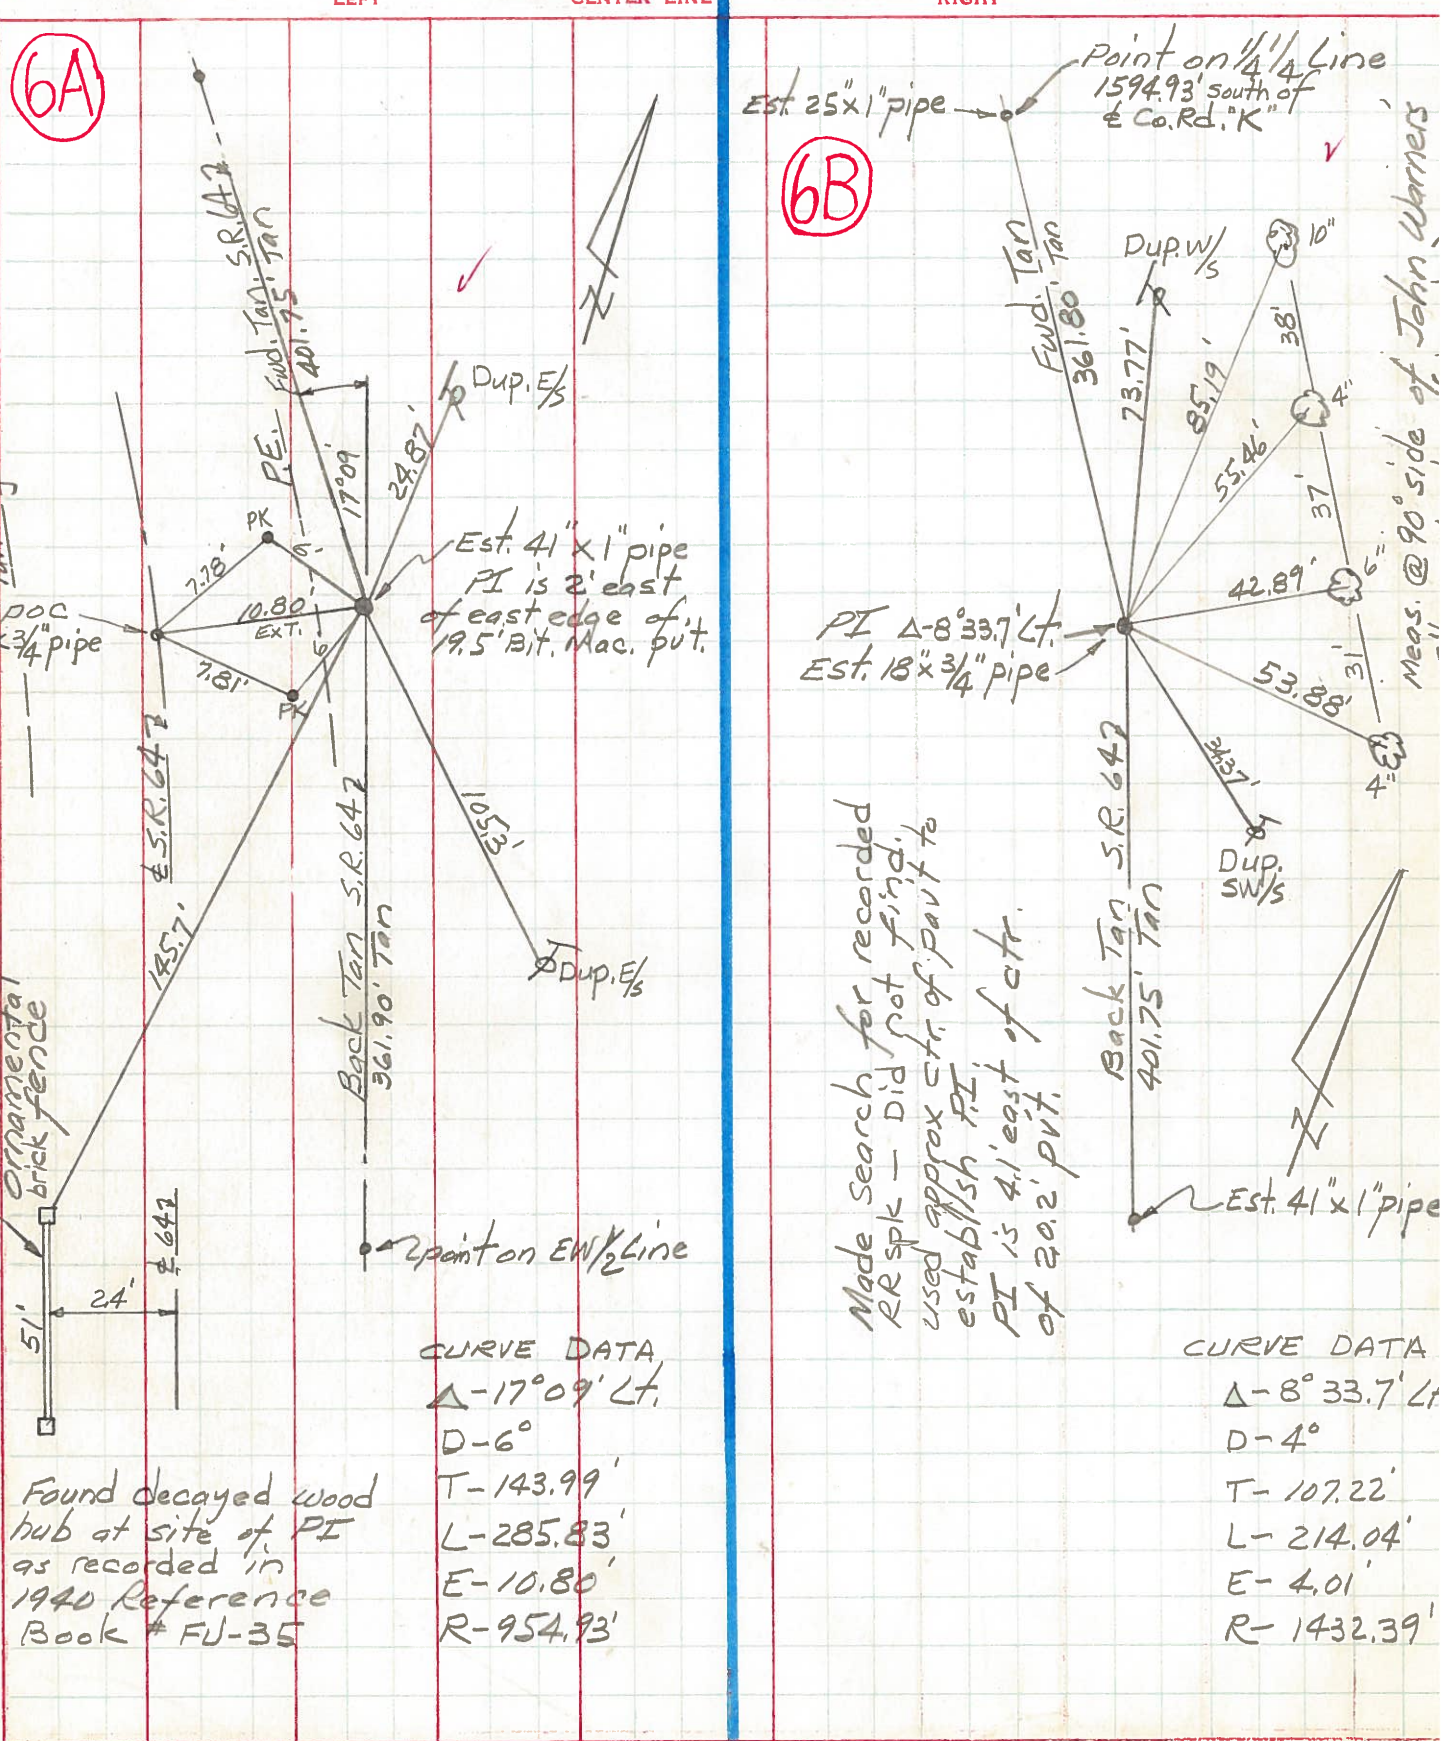 LEFT
CENTER LINE
RIGHT
6A
S.R. 647
Fwd. Tan. S.R. 647
401.75' Tan
P.E.
17°09'
24.87'
Dup. E/s
PK
7.78'
6'
POC
3/4" pipe
10.80'
EXT.
7.81'
PK
6'
Est. 41" x 1" pipe
PI is 2' east
of east edge of
19.5' Bit. Mac. pvt.
℄ S.R. 647
145.7'
Back Tan S.R. 647
361.90' Tan
Dup. E/s
N
Ornamental
brick fence
℄ 647
24'
51'
point on EW 1/2 Line
CURVE DATA
Δ-17°09' Lt.
D-6°
T-143.99'
L-285.83'
E-10.80'
R-954.93'
Found decayed wood
hub at site of PI
as recorded in
1940 Reference
Book # FU-35
6B
Est. 25" x 1" pipe
Point on 1/4 1/4 Line
1594.93' south of
℄ Co. Rd. "K"
Fwd. Tan
361.80' Tan
Dup. W/s
73.77'
85.19'
10"
38'
55.46'
4"
37'
42.89'
6"
31'
53.88'
4"
Meas. @ 90° side of John Warners'
PI Δ-8°33.7' Lt.
Est. 18" x 3/4" pipe
34.37'
Dup.
SW/s
Back Tan S.R. 647
401.75' Tan
N
Est. 41" x 1" pipe
Made Search for recorded
RR spk - Did not find.
used approx ctr. of pavt to
establish PI.
PI is 4.1' east of ctr.
of 20.2' pvt.
CURVE DATA
Δ-8°33.7' Lt
D-4°
T-107.22'
L-214.04'
E-4.01'
R-1432.39'